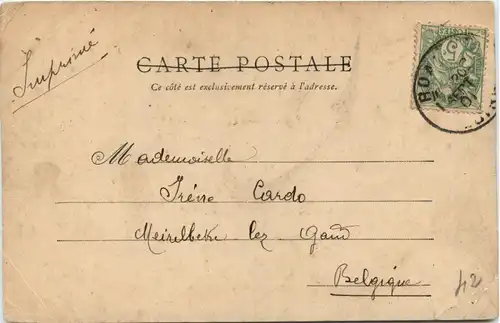 Imprimé
CARTE POSTALE
Ce côté est exclusivement réservé à l'adresse.
Mademoiselle
Irène Cardo
Meirelbeke lez Gand
Belgique
42